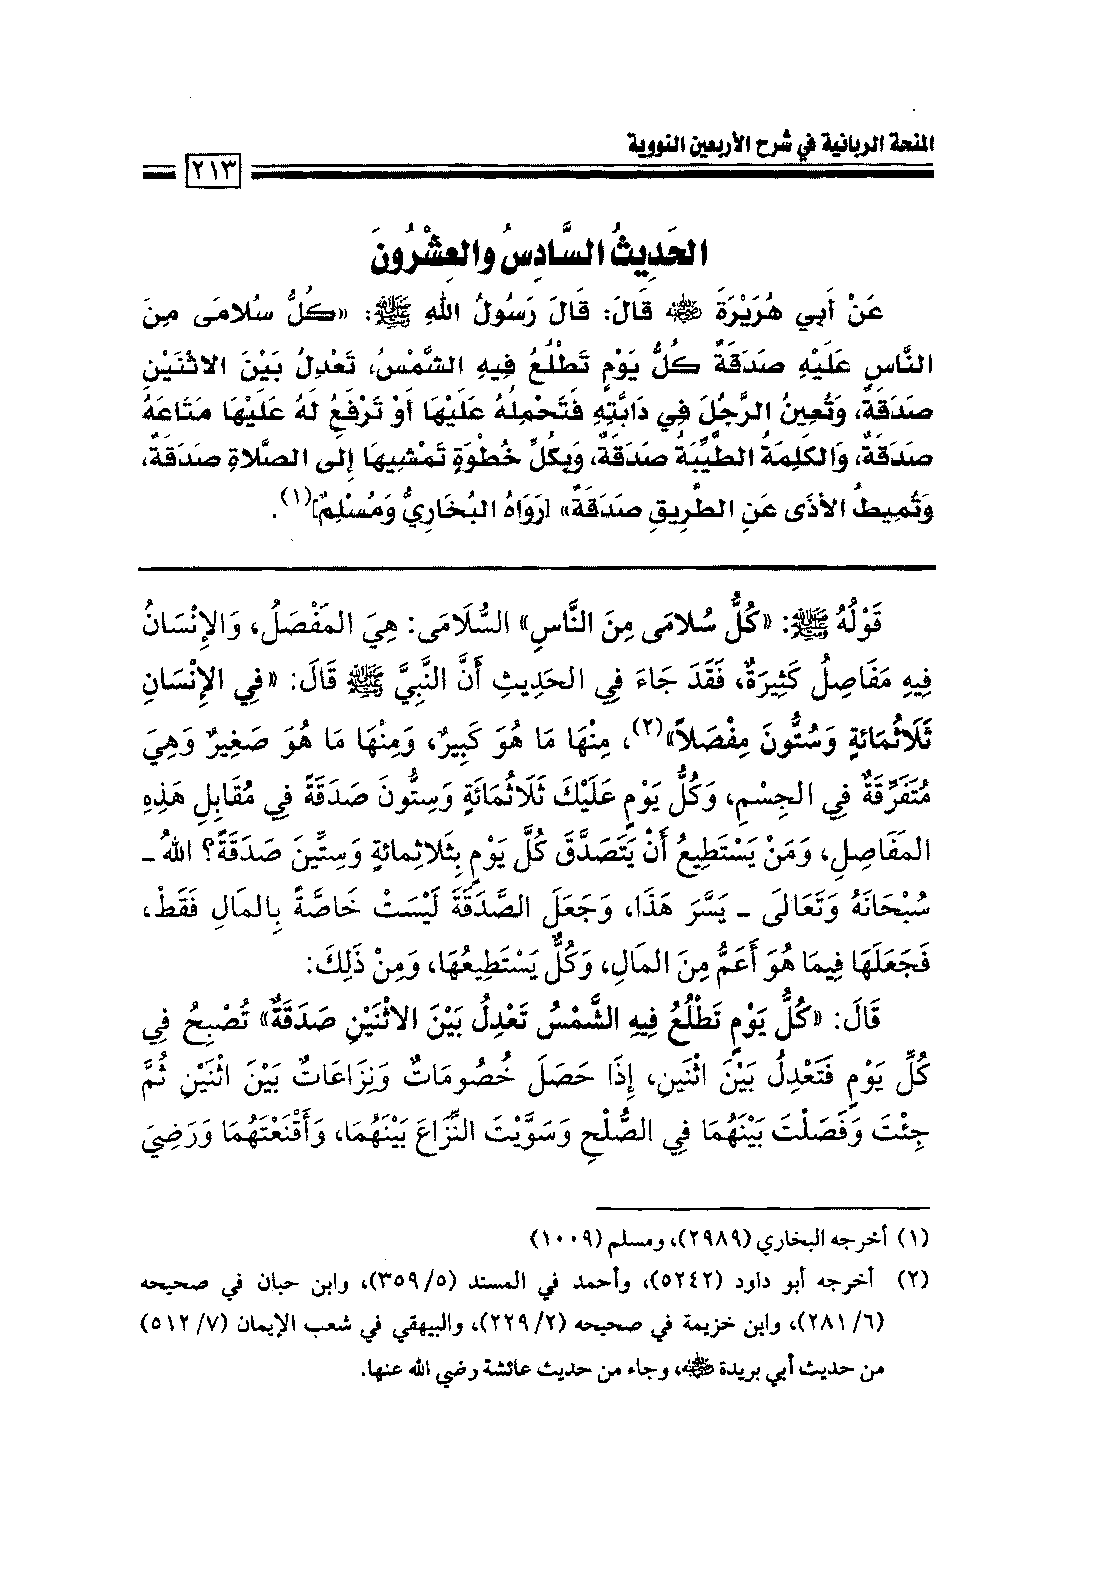 المنحة الربانية في شرح الأربعين النووية
٢١٣
الحَدِيثُ السَّادِسُ والعِشْرُونَ
عَنْ أَبِي هُرَيْرَةَ ﵁ قَالَ: قَالَ رَسُولُ اللهِ ﷺ: «كُلُّ سُلامَى مِنَ
النَّاسِ عَلَيْهِ صَدَقَةٌ كُلُّ يَوْمٍ تَطْلُعُ فِيهِ الشَّمْسُ، تَعْدِلُ بَيْنَ الاثْنَيْنِ
صَدَقَةٌ، وَتُعِينُ الرَّجُلَ فِي دَابَّتِهِ فَتَحْمِلُهُ عَلَيْهَا أَوْ تَرْفَعُ لَهُ عَلَيْهَا مَتَاعَهُ
صَدَقَةٌ، وَالكَلِمَةُ الطَّيِّبَةُ صَدَقَةٌ، وَبِكُلِّ خُطْوَةٍ تَمْشِيهَا إِلى الصَّلاةِ صَدَقَةٌ،
وَتُمِيطُ الأَذَى عَنِ الطَّرِيقِ صَدَقَةٌ» [رَوَاهُ البُخَارِيُّ وَمُسْلِمٌ](١).
قَوْلُهُ ﷺ: «كُلُّ سُلامَى مِنَ النَّاسِ» السُّلَامَى: هِيَ المَفْصَلُ، وَالإِنْسَانُ
فِيهِ مَفَاصِلُ كَثِيرَةٌ، فَقَدَ جَاءَ فِي الحَدِيثِ أَنَّ النَّبِيَّ ﷺ قَالَ: «فِي الإِنْسَانِ
ثَلَاثُمَائَةٍ وَسُتُّونَ مِفْصَلاً»(٢)، مِنْهَا مَا هُوَ كَبِيرٌ، وَمِنْهَا مَا هُوَ صَغِيرٌ وَهِيَ
مُتَفَرِّقَةٌ فِي الجِسْمِ، وَكُلُّ يَوْمٍ عَلَيْكَ ثَلَاثُمَائَةٍ وَسِتُّونَ صَدَقَةً فِي مُقَابِلِ هَذِهِ
المَفَاصِلِ، وَمَنْ يَسْتَطِيعُ أَنْ يَتَصَدَّقَ كُلَّ يَوْمٍ بِثَلاثِمائةٍ وَسِتِّينَ صَدَقَةً؟ اللهُ -
سُبْحَانَهُ وَتَعَالَى - يَسَّرَ هَذَا، وَجَعَلَ الصَّدَقَةَ لَيْسَتْ خَاصَّةً بِالمَالِ فَقَطْ،
فَجَعَلَهَا فِيمَا هُوَ أَعَمُّ مِنَ المَالِ، وَكُلٌّ يَسْتَطِيعُهَا، وَمِنْ ذَلِكَ:
قَالَ: «كُلُّ يَوْمٍ تَطْلُعُ فِيهِ الشَّمْسُ تَعْدِلُ بَيْنَ الاثْنَيْنِ صَدَقَةٌ» تُصْبِحُ فِي
كُلِّ يَوْمٍ فَتَعْدِلُ بَيْنَ اثْنَينِ، إِذَا حَصَلَ خُصُومَاتٌ وَنِزَاعَاتٌ بَيْنَ اثْنَيْنِ ثُمَّ
جِئْتَ وَفَصَلْتَ بَيْنَهُمَا فِي الصُّلْحِ وَسَوَّيْتَ النِّزَاعَ بَيْنَهُمَا، وَأَقْنَعْتَهُمَا وَرَضِيَ
(١) أخرجه البخاري (٢٩٨٩)، ومسلم (١٠٠٩)
(٢) أخرجه أبو داود (٥٢٤٢)، وأحمد في المسند (٣٥٩/٥)، وابن حبان في صحيحه
(٢٨١/٦)، وابن خزيمة في صحيحه (٢٢٩/٢)، والبيهقي في شعب الإيمان (٥١٢/٧)
من حديث أبي بريدة ﵁، وجاء من حديث عائشة رضي الله عنها.